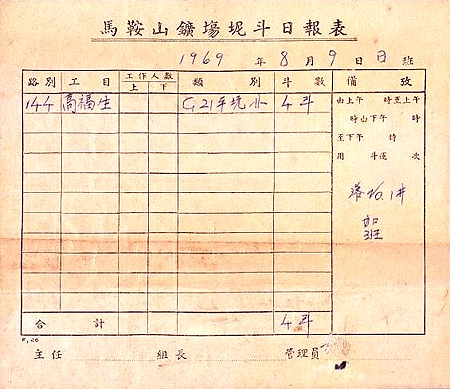 馬鞍山鑛塲坭斗日報表
1969 年 8 月 9 日 日 班
路別 工目 工作人數 類別 斗數 備攷
上 下
144 高福生 4斗
由上午 時至上午
時由下午 時
至下午 時
用 斗運 次
加
班
合計 4斗
F.46
主任 組長 管理員